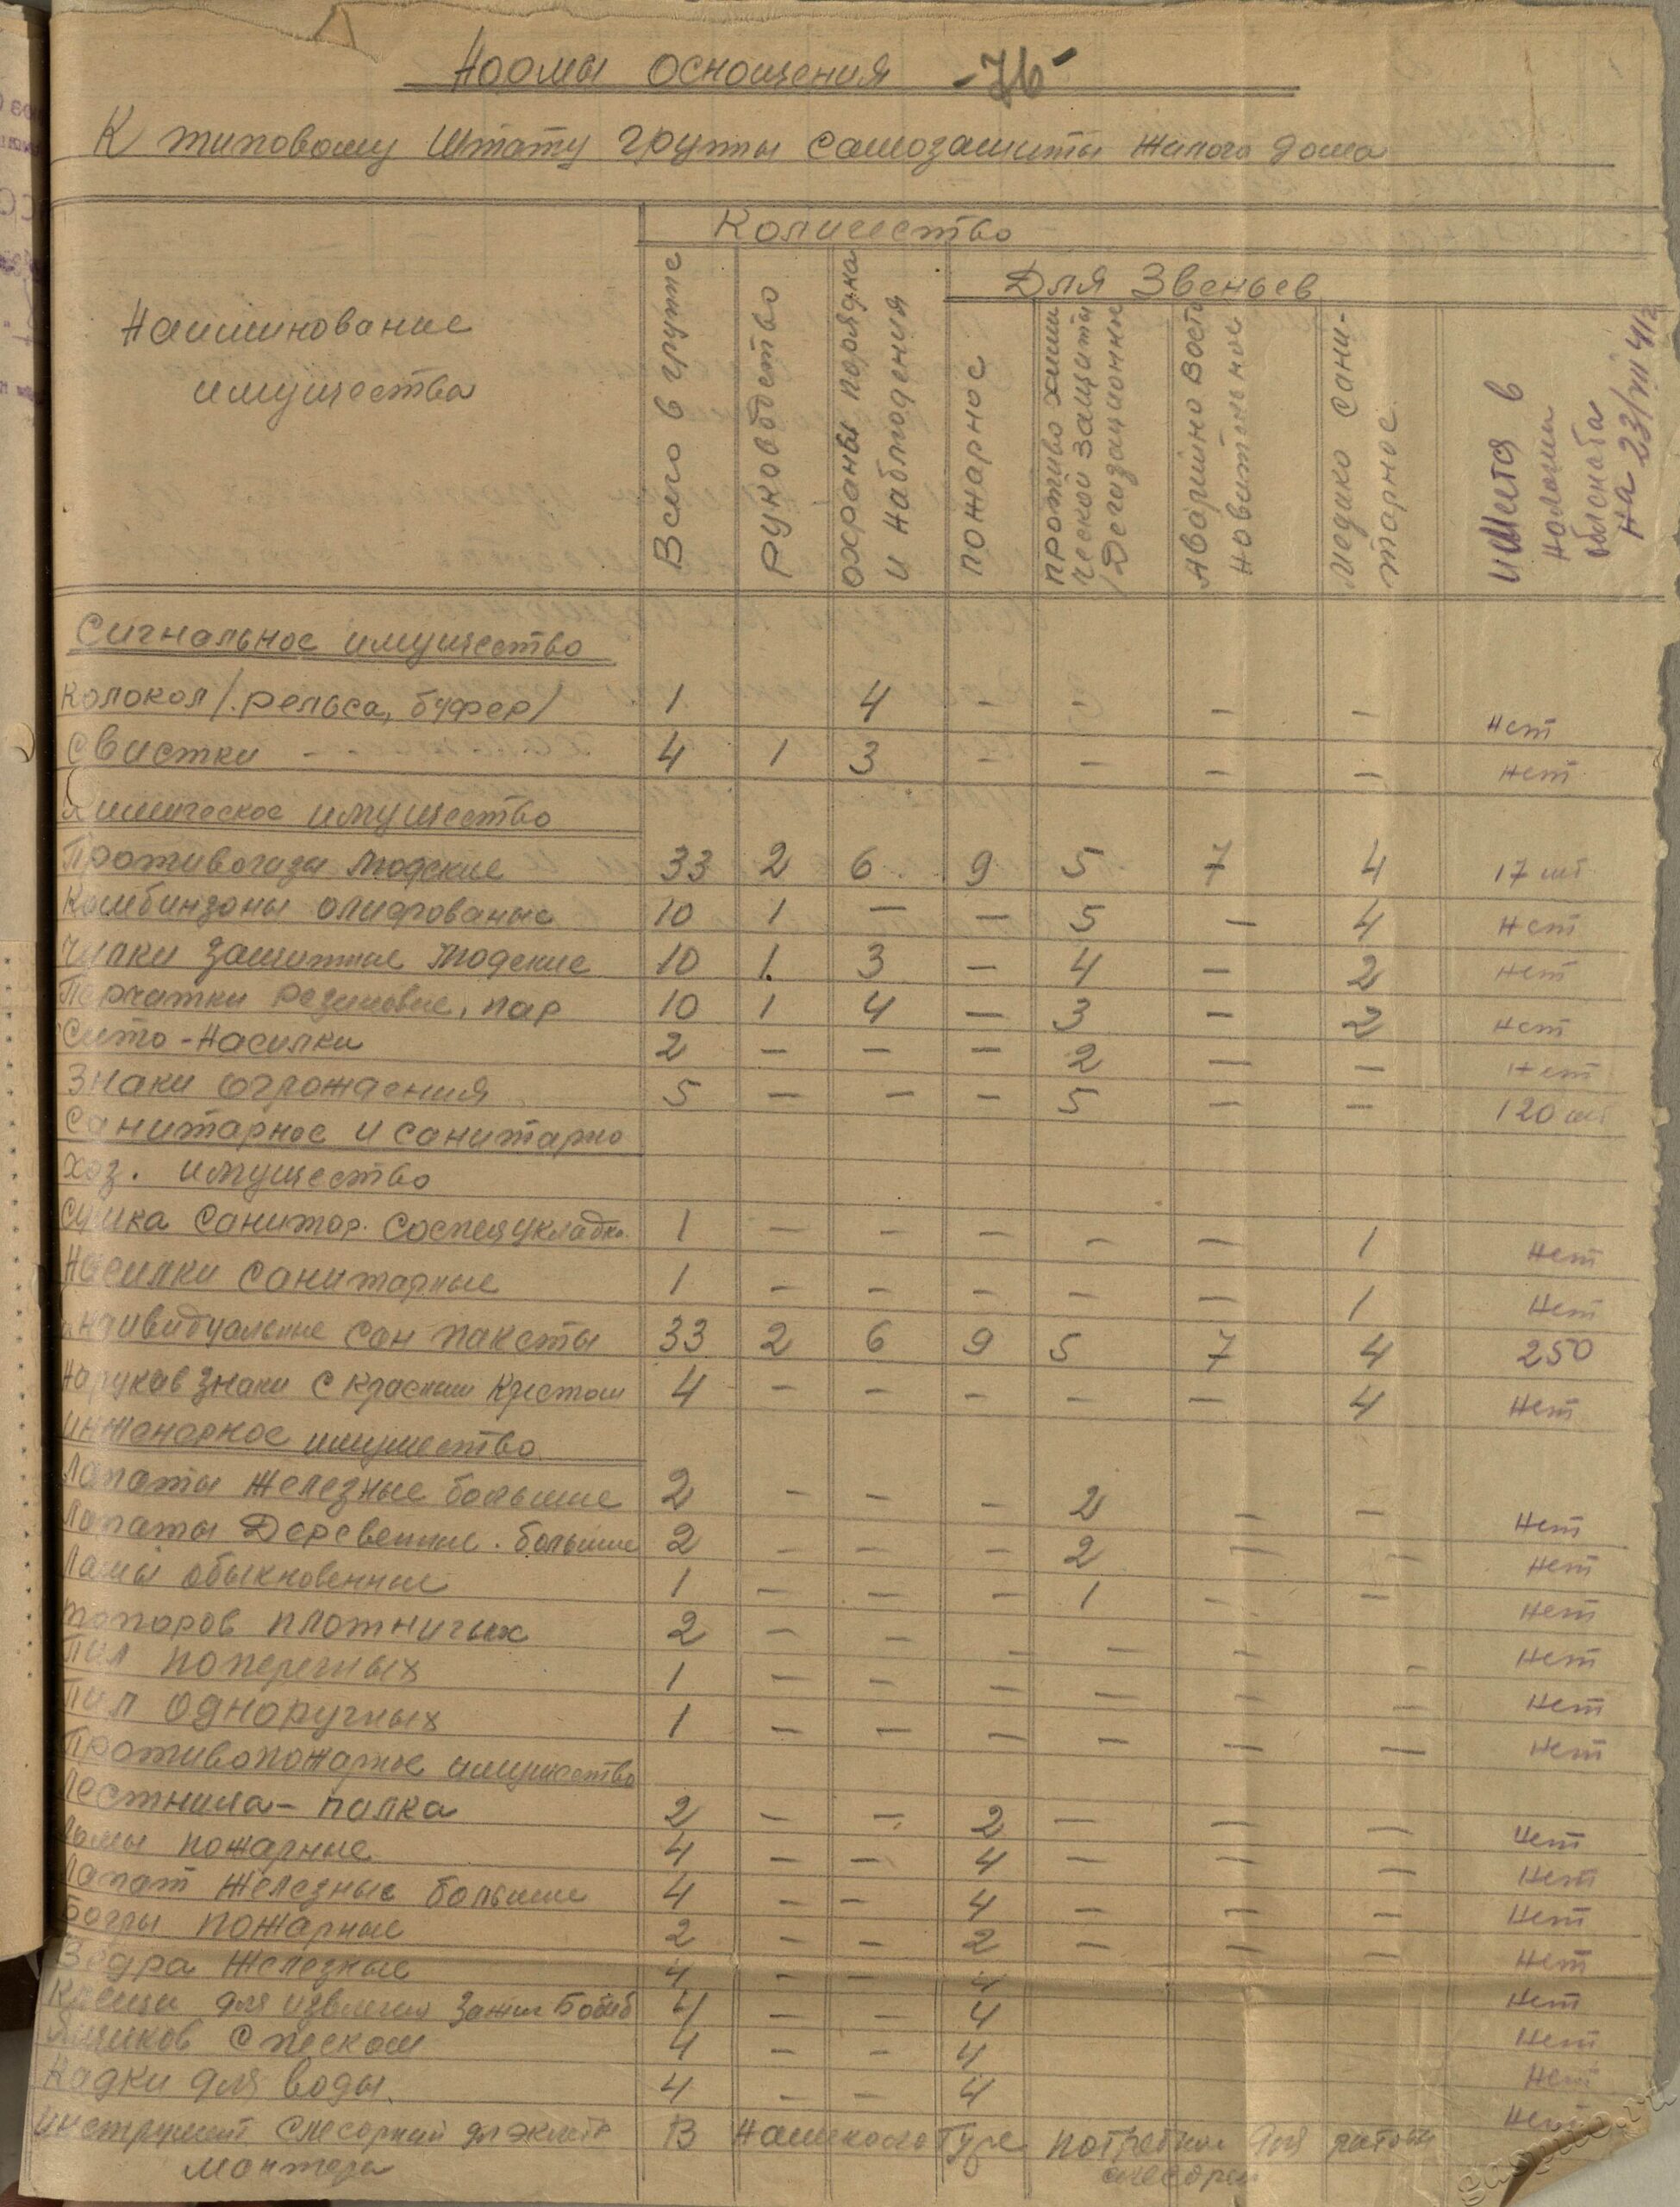 Нормы оснощения -76-
К типовому Штату группы самозащиты жилого дома
Количество
Для Звеньев
Наиминование имущества
Всего в групе
Руководство
охраны порядка и наблюдения
пожарное
противо хими ческой защиты /Дегазационные
Аварийно Восто новительное
медико сани- тарное
имеется в наличии на 23/VIII 41г
Сигнальное имущество
Колокол /.рельса, буфер/ 1 4 - - - - нет
Свистки - - 4 1 3 - - - - нет
Химическое имущество
Противогазы людские 33 2 6 9 5 7 4 17 шт
Комбинзоны олифованые 10 1 - - 5 - 4 нет
Чулки защитные людские 10 1. 3 - 4 - 2 нет
Перчатки резиновые, пар 10 1 4 - 3 - 2 нет
Сито-Насилки 2 - - - 2 - - нет
Знаки огрождения 5 - - - 5 - - 120 шт
Санитарное и санитарно
хоз. имущество
Сумка Санитар. Соспецукладк. 1 - - - - - 1 нет
Насилки санитарные 1 - - - - - 1 нет
Индивидуальные сан пакеты 33 2 6 9 5 7 4 250
Нарукав знаки с красным крестом 4 - - - - - 4 нет
Инженерное имущество
Лапаты железные большие 2 - - - 2 - - нет
Лопаты Деревенные. большие 2 - - - 2 - - нет
Ломы обыкновенные 1 - - - 1 - - нет
топоров плотничых 2 - - - - - - нет
Пил поперечных 1 - - - - - - нет
Пил одноручных 1 - - - - - - нет
Противопожарное имущество
Лестница-палка 2 - - 2 - - - нет
Ломы пожарные 4 - - 4 - - - нет
Лапат железные большие 4 - - 4 - - - нет
Багры пожарные 2 - - 2 - - - нет
Ведра железные 4 - - 4 нет
Клещи для извлечия Зажиг Бомб 4 - - 4 нет
Ящиков с песком 4 - - 4 нет
Кадки для воды. 4 - - 4 нет
Инструмент Слесорный
монтера
В для